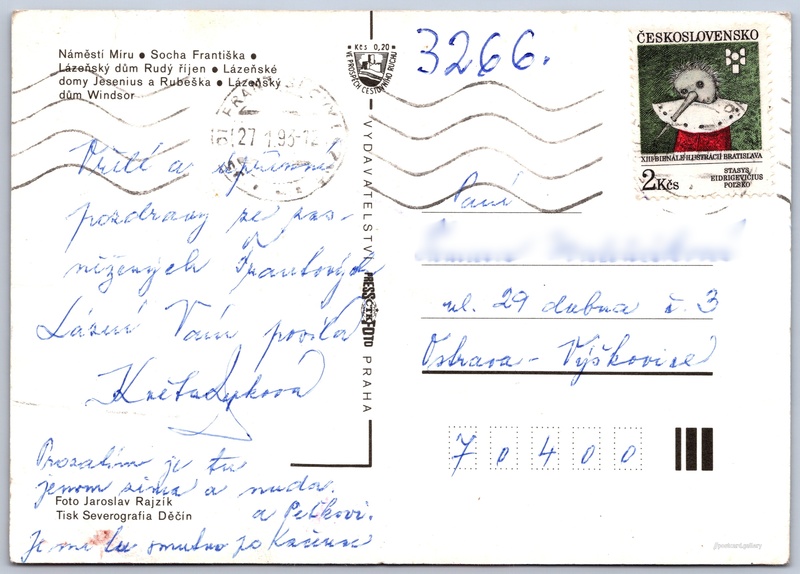 Náměstí Míru ● Socha Františka ●
Lázeňský dům Rudý říjen ● Lázeňské
domy Jesenius a Rubeška ● Lázeňský
dům Windsor
27 1.93-12
Vřelé a upřímné
pozdravy ze zas-
něžených Františkových
Lázní Vám posílá
Květa
Prozatím je tu
jenom zima a nuda.
Foto Jaroslav Rajzík
Tisk Severografia Děčín
a Peťkovi.
Je mi tu smutno po
Kčs 0,20
VE PROSPĚCH CESTOVNÍHO RUCHU
VYDAVATELSTVÍ
PRESSFOTO
ČTK
PRAHA
3266.
ČESKOSLOVENSKO
XIII BIENÁLE ILUSTRÁCIÍ BRATISLAVA
2 Kčs
STASYS
EIDRIGEVIČIUS
POĽSKO
Paní
ul. 29 dubna č. 3
Ostrava - Výškovice
7 0 4 0 0